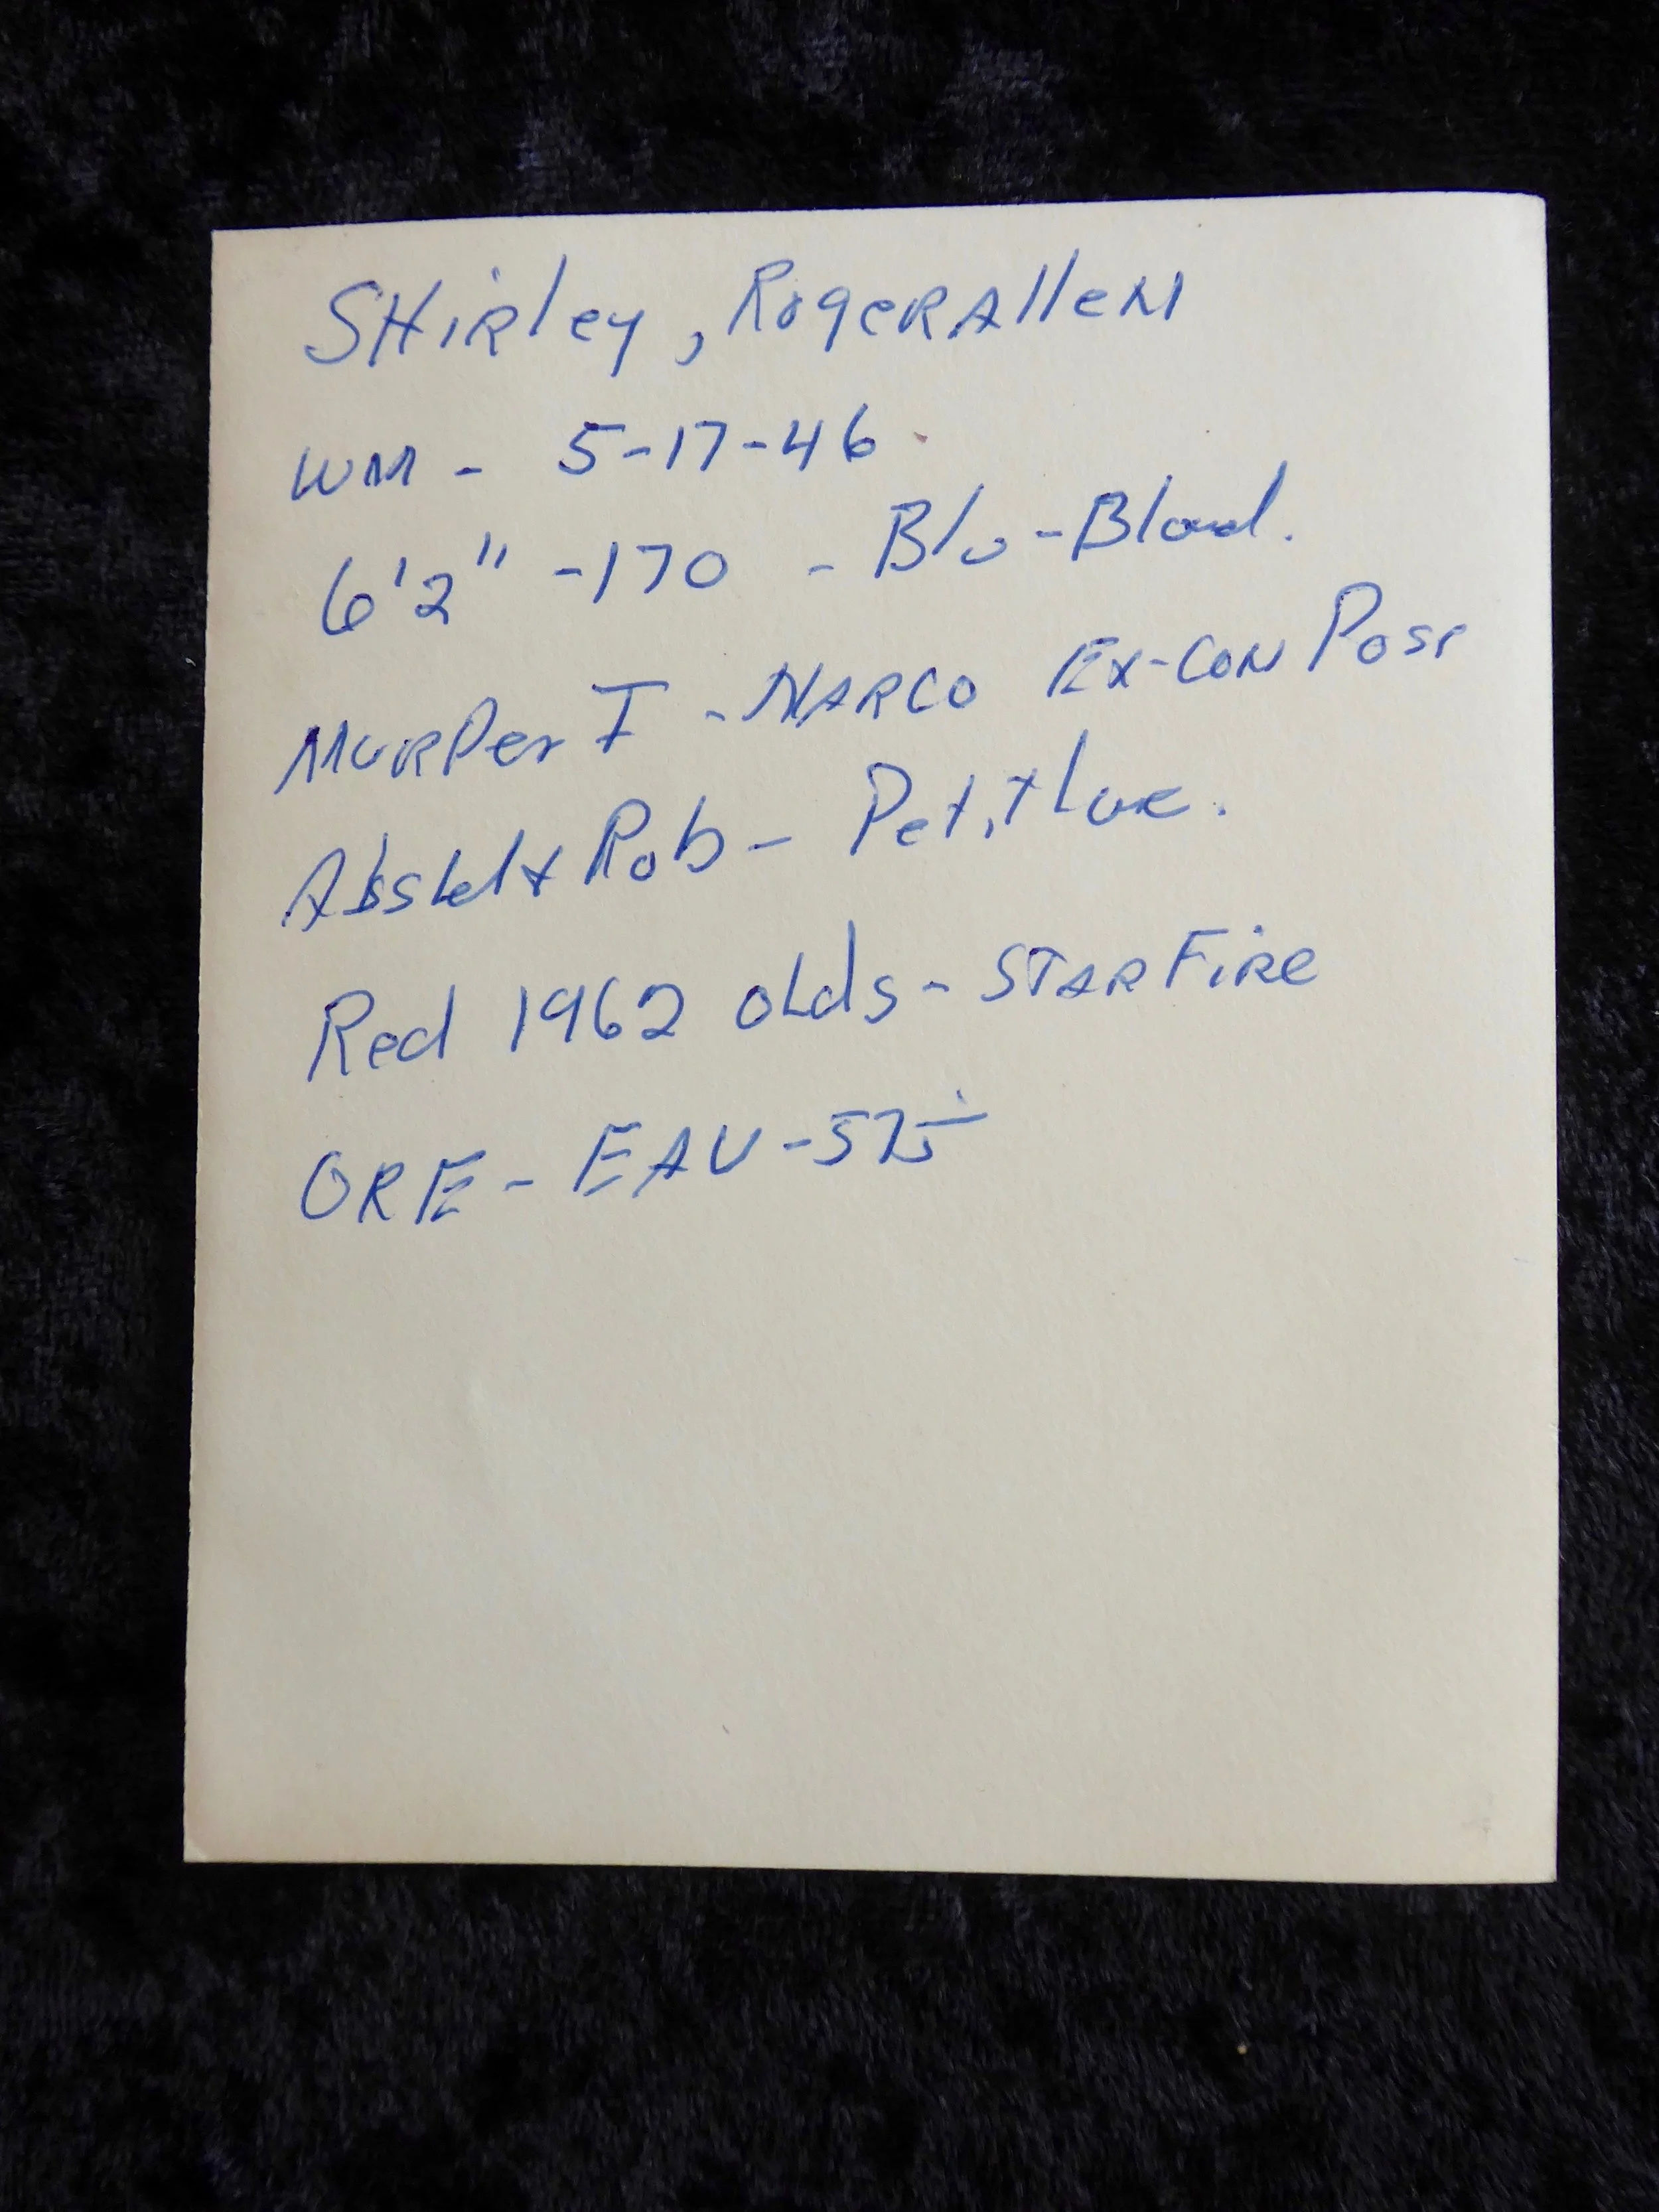 SHirley, Roger Allen
WM - 5-17-46
6'2" -170 - Blu-Blond.
MURDer I - NARCO Ex-CON Poss
Rob - Petit Larc.
Red 1962 OLds - STARFiRe
ORE - EAU-575